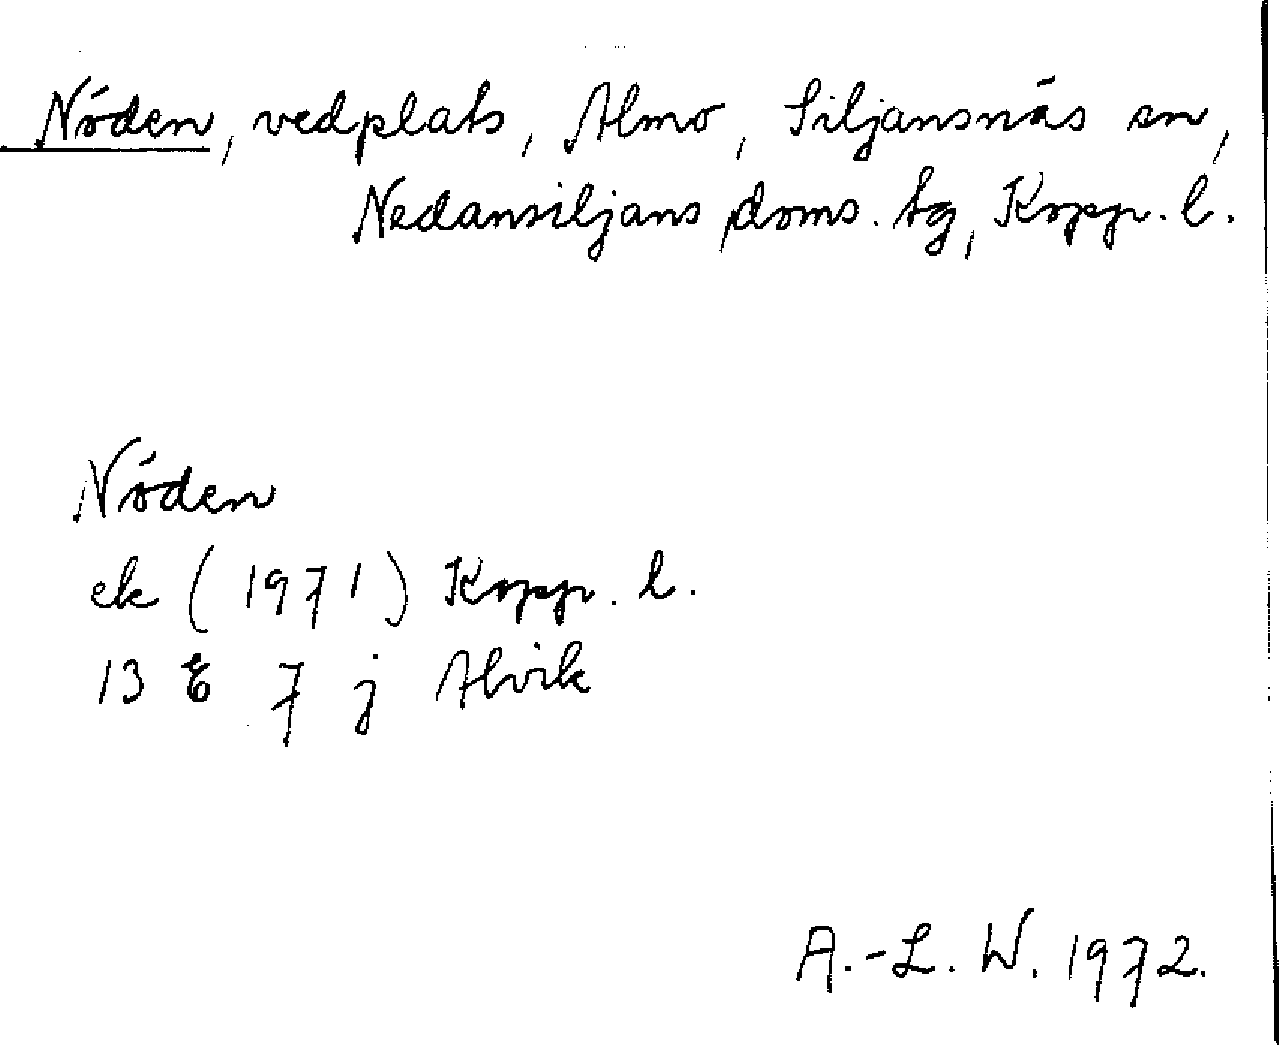 Nöden, vedplats, Almo, Siljansnäs sn,
Nedansiljans doms. tg, Kopp. l.
Nöden
ek (1971) Kopp. l.
13 E 7 j Alvik
A.-L. W. 1972.